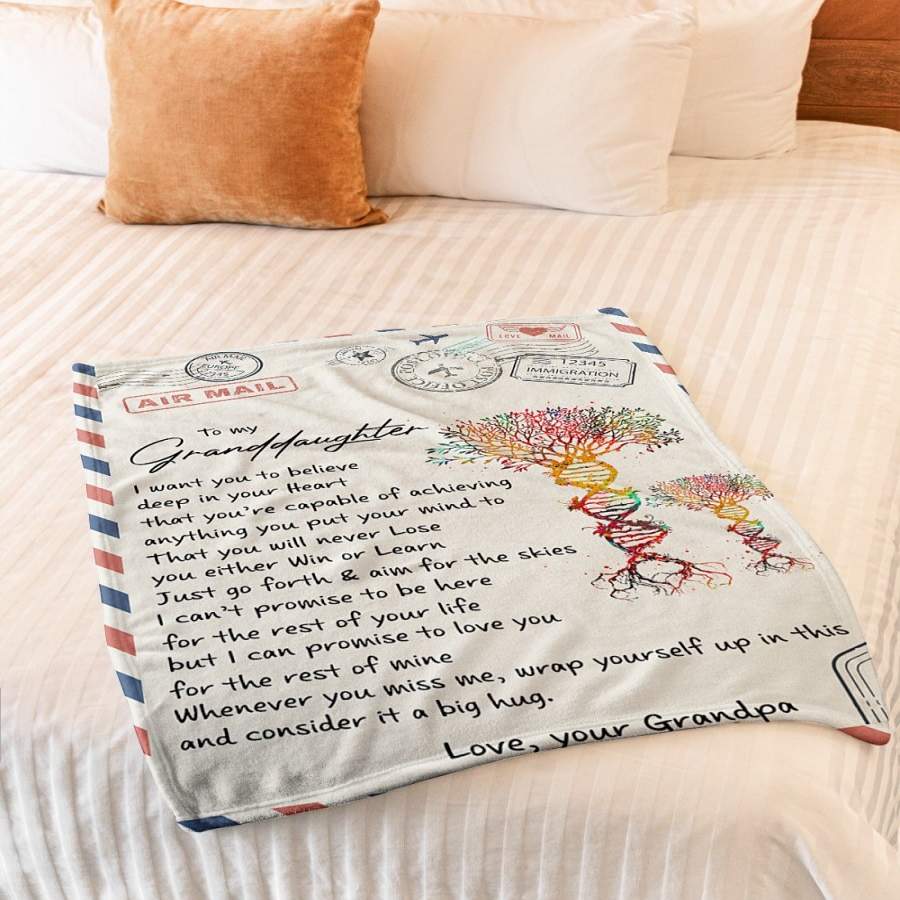 AIR MAIL
EUROPE
AIR MAIL
POST OFFICE
LOVE MAIL
12345
IMMIGRATION
To my
Granddaughter
I want you to believe
deep in your Heart
that you're capable of achieving
anything you put your mind to
That you will never Lose
you either Win or Learn
Just go forth & aim for the skies
I can't promise to be here
for the rest of your life
but I can promise to love you
for the rest of mine
Whenever you miss me, wrap yourself up in this
and consider it a big hug.
Love, your Grandpa